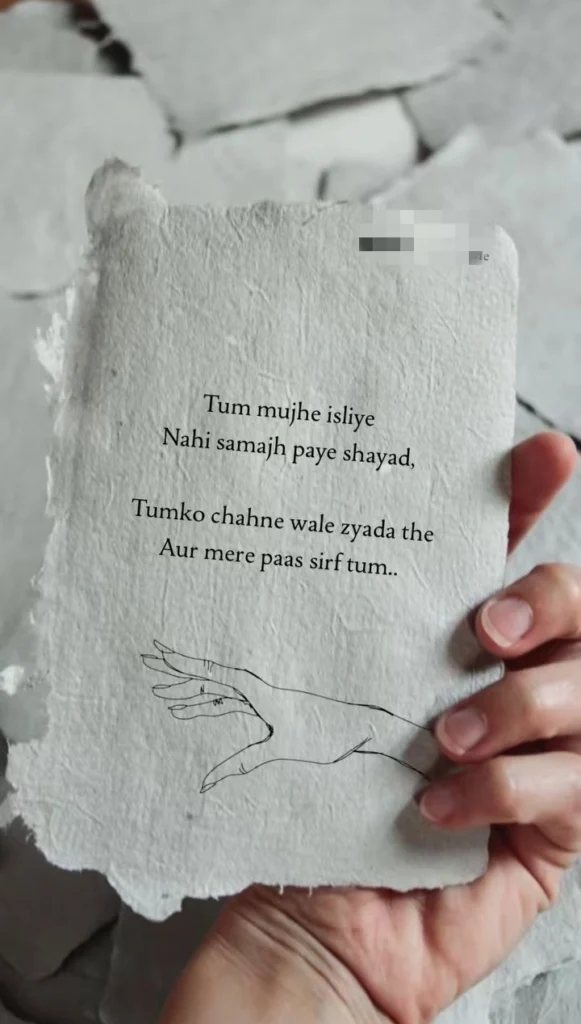 Tum mujhe isliye
Nahi samajh paye shayad,
Tumko chahne wale zyada the
Aur mere paas sirf tum..